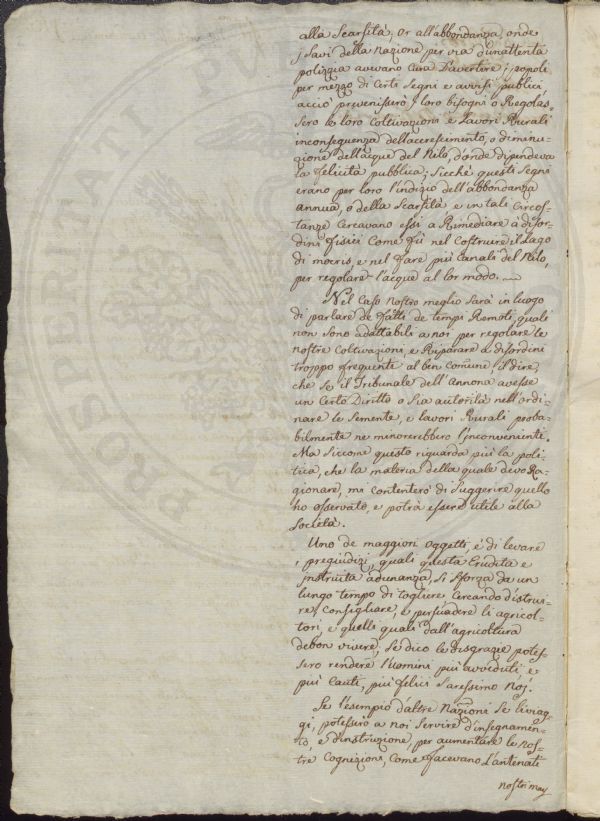 alla Scarsità, or all'abbondanza, onde
j Savi della Nazione per via d'un attenta
polizzia avevano cura d'avertire j popoli
per mezzo di certi segni e avvisi publici
acciò prevenissero j loro bisogni o Regolas-
sero le loro Coltivazioni e Lavori Rurali
inconseguenza dell'accrescimento, o diminu-
zione dell'acque del Nilo, d'onde dipendeva
la felicità pubblica; sicchè questi segni
erano per loro l'indizio dell'abbondanza
annua, o della Scarsità e in tali Circos-
tanze Cercavano essi a Rimediare à disor-
dini fisici Come fù nel Costruire il Lago
di moeris, e nel fare più Canali del Nilo,
per regolare l'acque al lor modo.
Nel Caso Nostro meglio sarà in luogo
di parlare de fatti de tempi Remoti, quali
non sono adattabili a noi per regolare le
nostre Coltivazioni, e Riparare a disordini
troppo frequenti al ben Comune, il dire,
che se il Tribunale dell'Annona avesse
un Certo Diritto o sia autorità nell'ordi-
nare le semente, e lavori Rurali proba-
bilmente ne minorerebbero l'inconveniente.
Ma Siccome questo riguarda più la poli-
tica, che la materia della quale devo Ra-
gionare, mi Contenterò di suggerire quello
ho osservato, e potrà essere utile alla
Società.
Uno de maggiori oggetti, è di levare
i pregiudizi, quali questa Erudita e
instruita adunanza, si sforza da un
lungo tempo di togliere Cercando d'istrui-
re, Consigliare, e persuadere li agricol-
tori, e quelli quali dall'agricoltura
debon vivere, se dico le disgrazie potes-
sero rendere l'uomini più avveduti e
più Cauti, più felici saressimo Noi.
Se l'esempio d'altre Nazioni se li viag-
gi, potessero a noi servire d'insegnamen-
to, e d'instruzione, per aumentare le Nos-
tre Cognizioni, Come facevano l'antenati
nostri